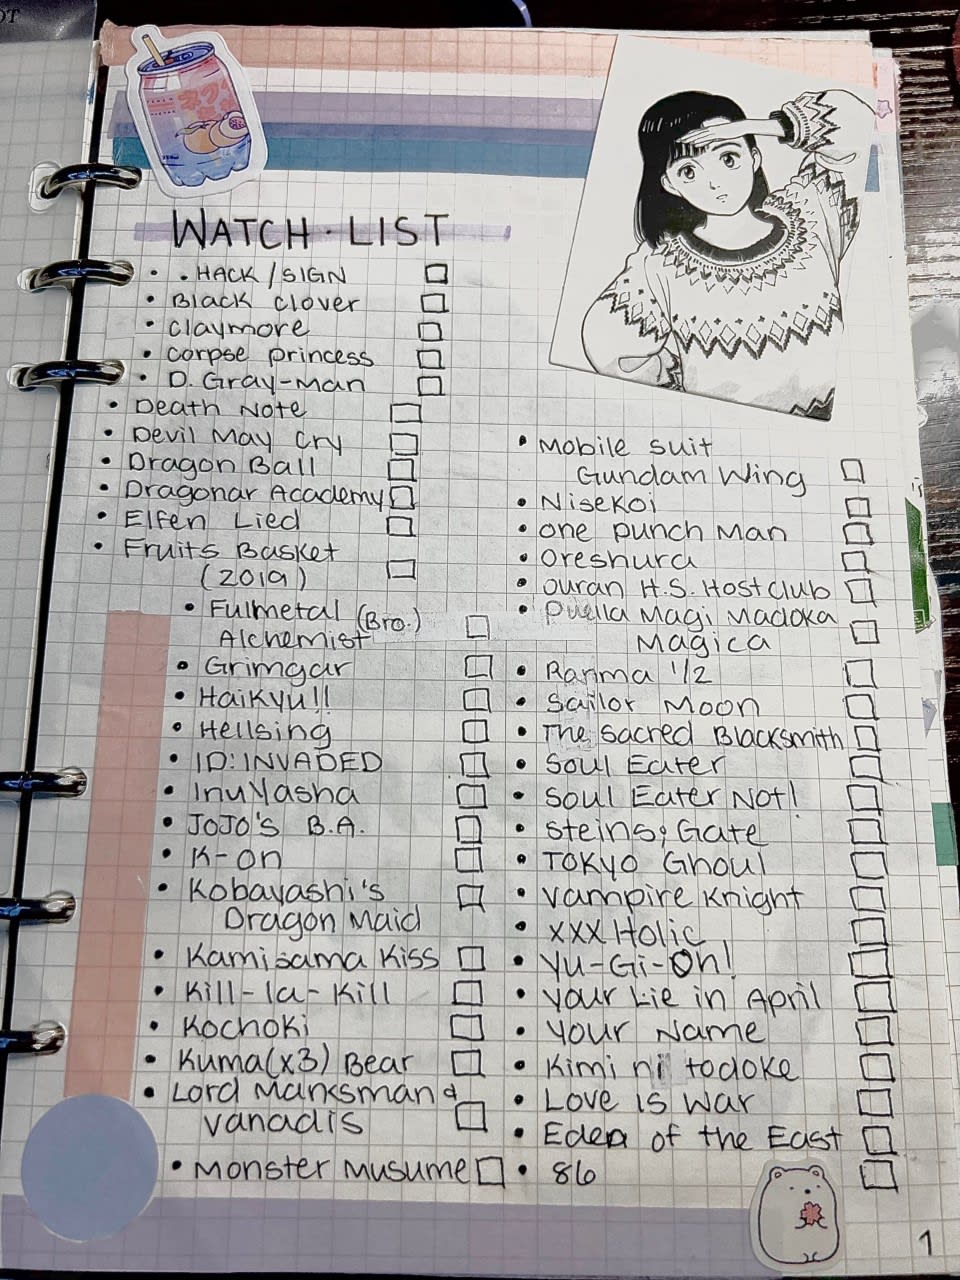 WATCH · LIST
• .HACK/SIGN
• Black Clover
• Claymore
• Corpse Princess
• D. Gray-Man
• Death Note
• Devil May Cry
• Dragon Ball
• Dragonar Academy
• Elfen Lied
• Fruits Basket
(2019)
• Fullmetal (Bro.)
Alchemist
• Grimgar
• Haikyu!!
• Hellsing
• ID:INVADED
• InuYasha
• JoJo's B.A.
• K-on
• Kobayashi's
Dragon Maid
• Kamisama Kiss
• Kill-la-Kill
• Kochoki
• Kuma(x3) Bear
• Lord Marksman &
Vanadis
• Monster Musume
• Mobile Suit
Gundam Wing
• Nisekoi
• One Punch Man
• Oreshura
• Ouran H.S. Host Club
• Puella Magi Madoka
Magica
• Ranma 1/2
• Sailor Moon
• The Sacred Blacksmith
• Soul Eater
• Soul Eater Not!
• Steins;Gate
• Tokyo Ghoul
• Vampire Knight
• XXX Holic
• Yu-Gi-Oh!
• Your Lie in April
• Your Name
• Kimi ni todoke
• Love is War
• Eden of the East
• 86
1